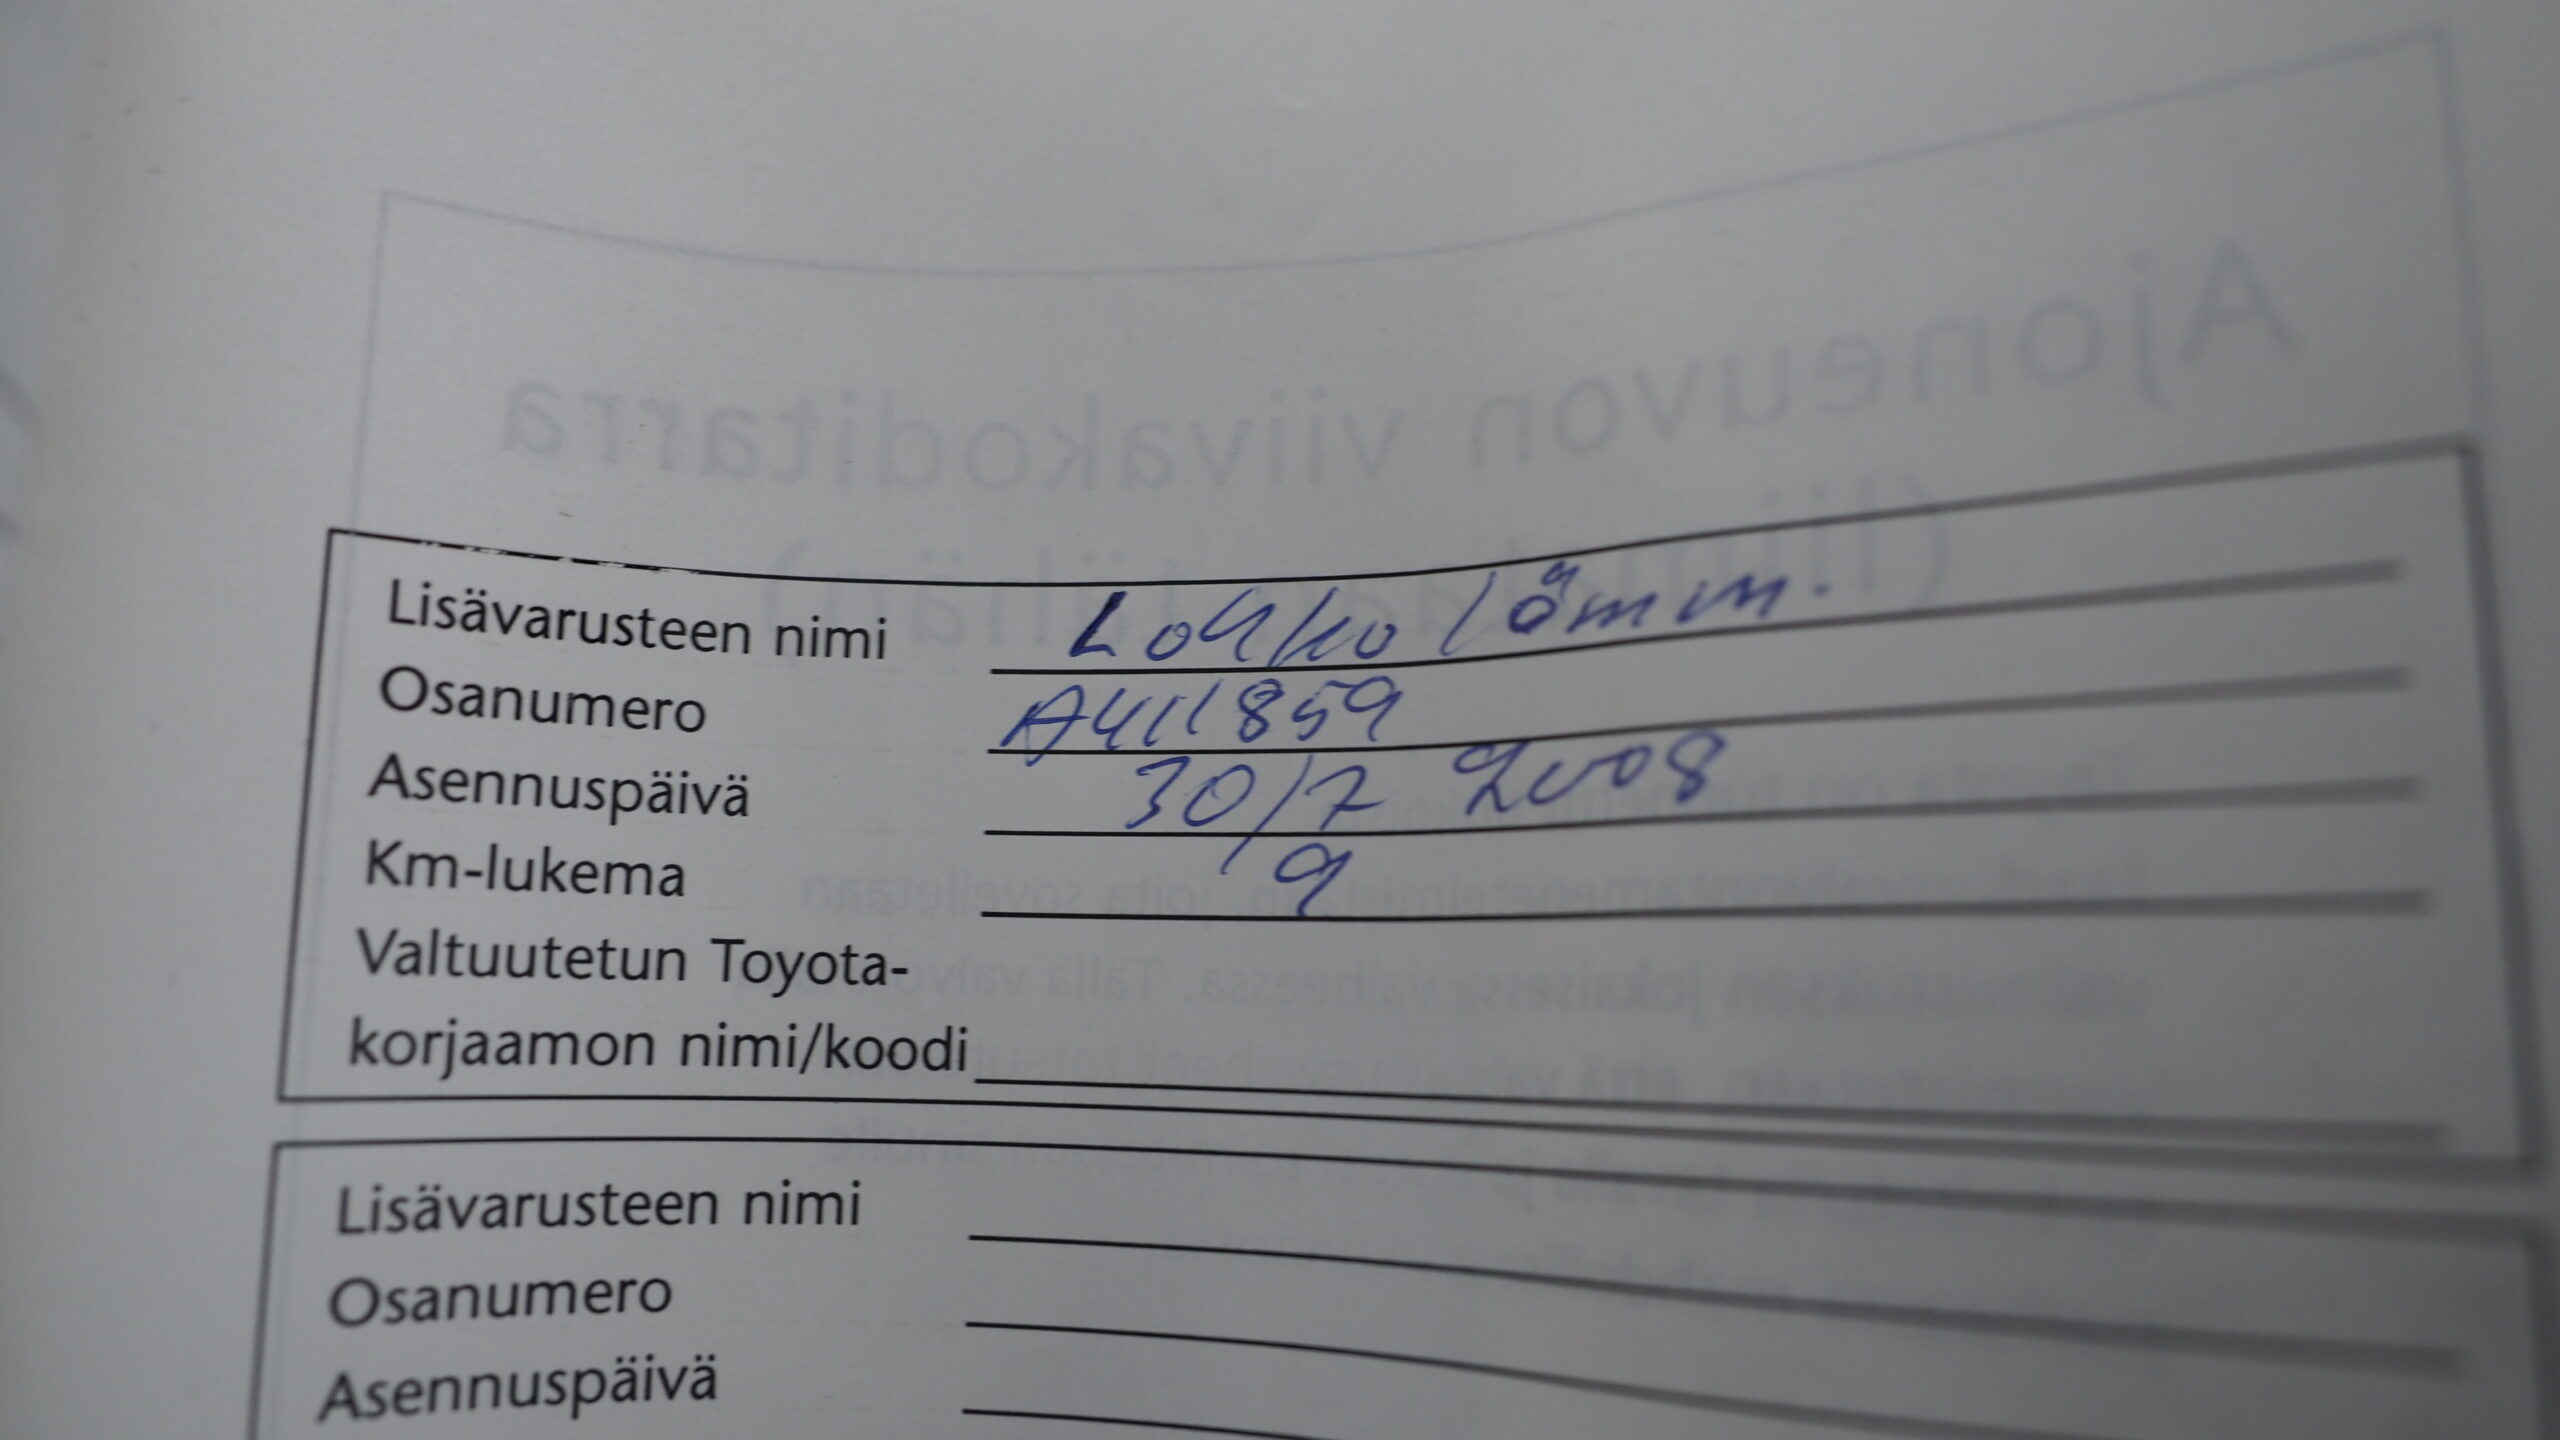 Ajoneuvon viivakoditarra
Lisävarusteen nimi Lohko lämm.
Osanumero A411859
Asennuspäivä 30/7 2008
Km-lukema 9
Valtuutetun Toyota-
korjaamon nimi/koodi
Lisävarusteen nimi
Osanumero
Asennuspäivä